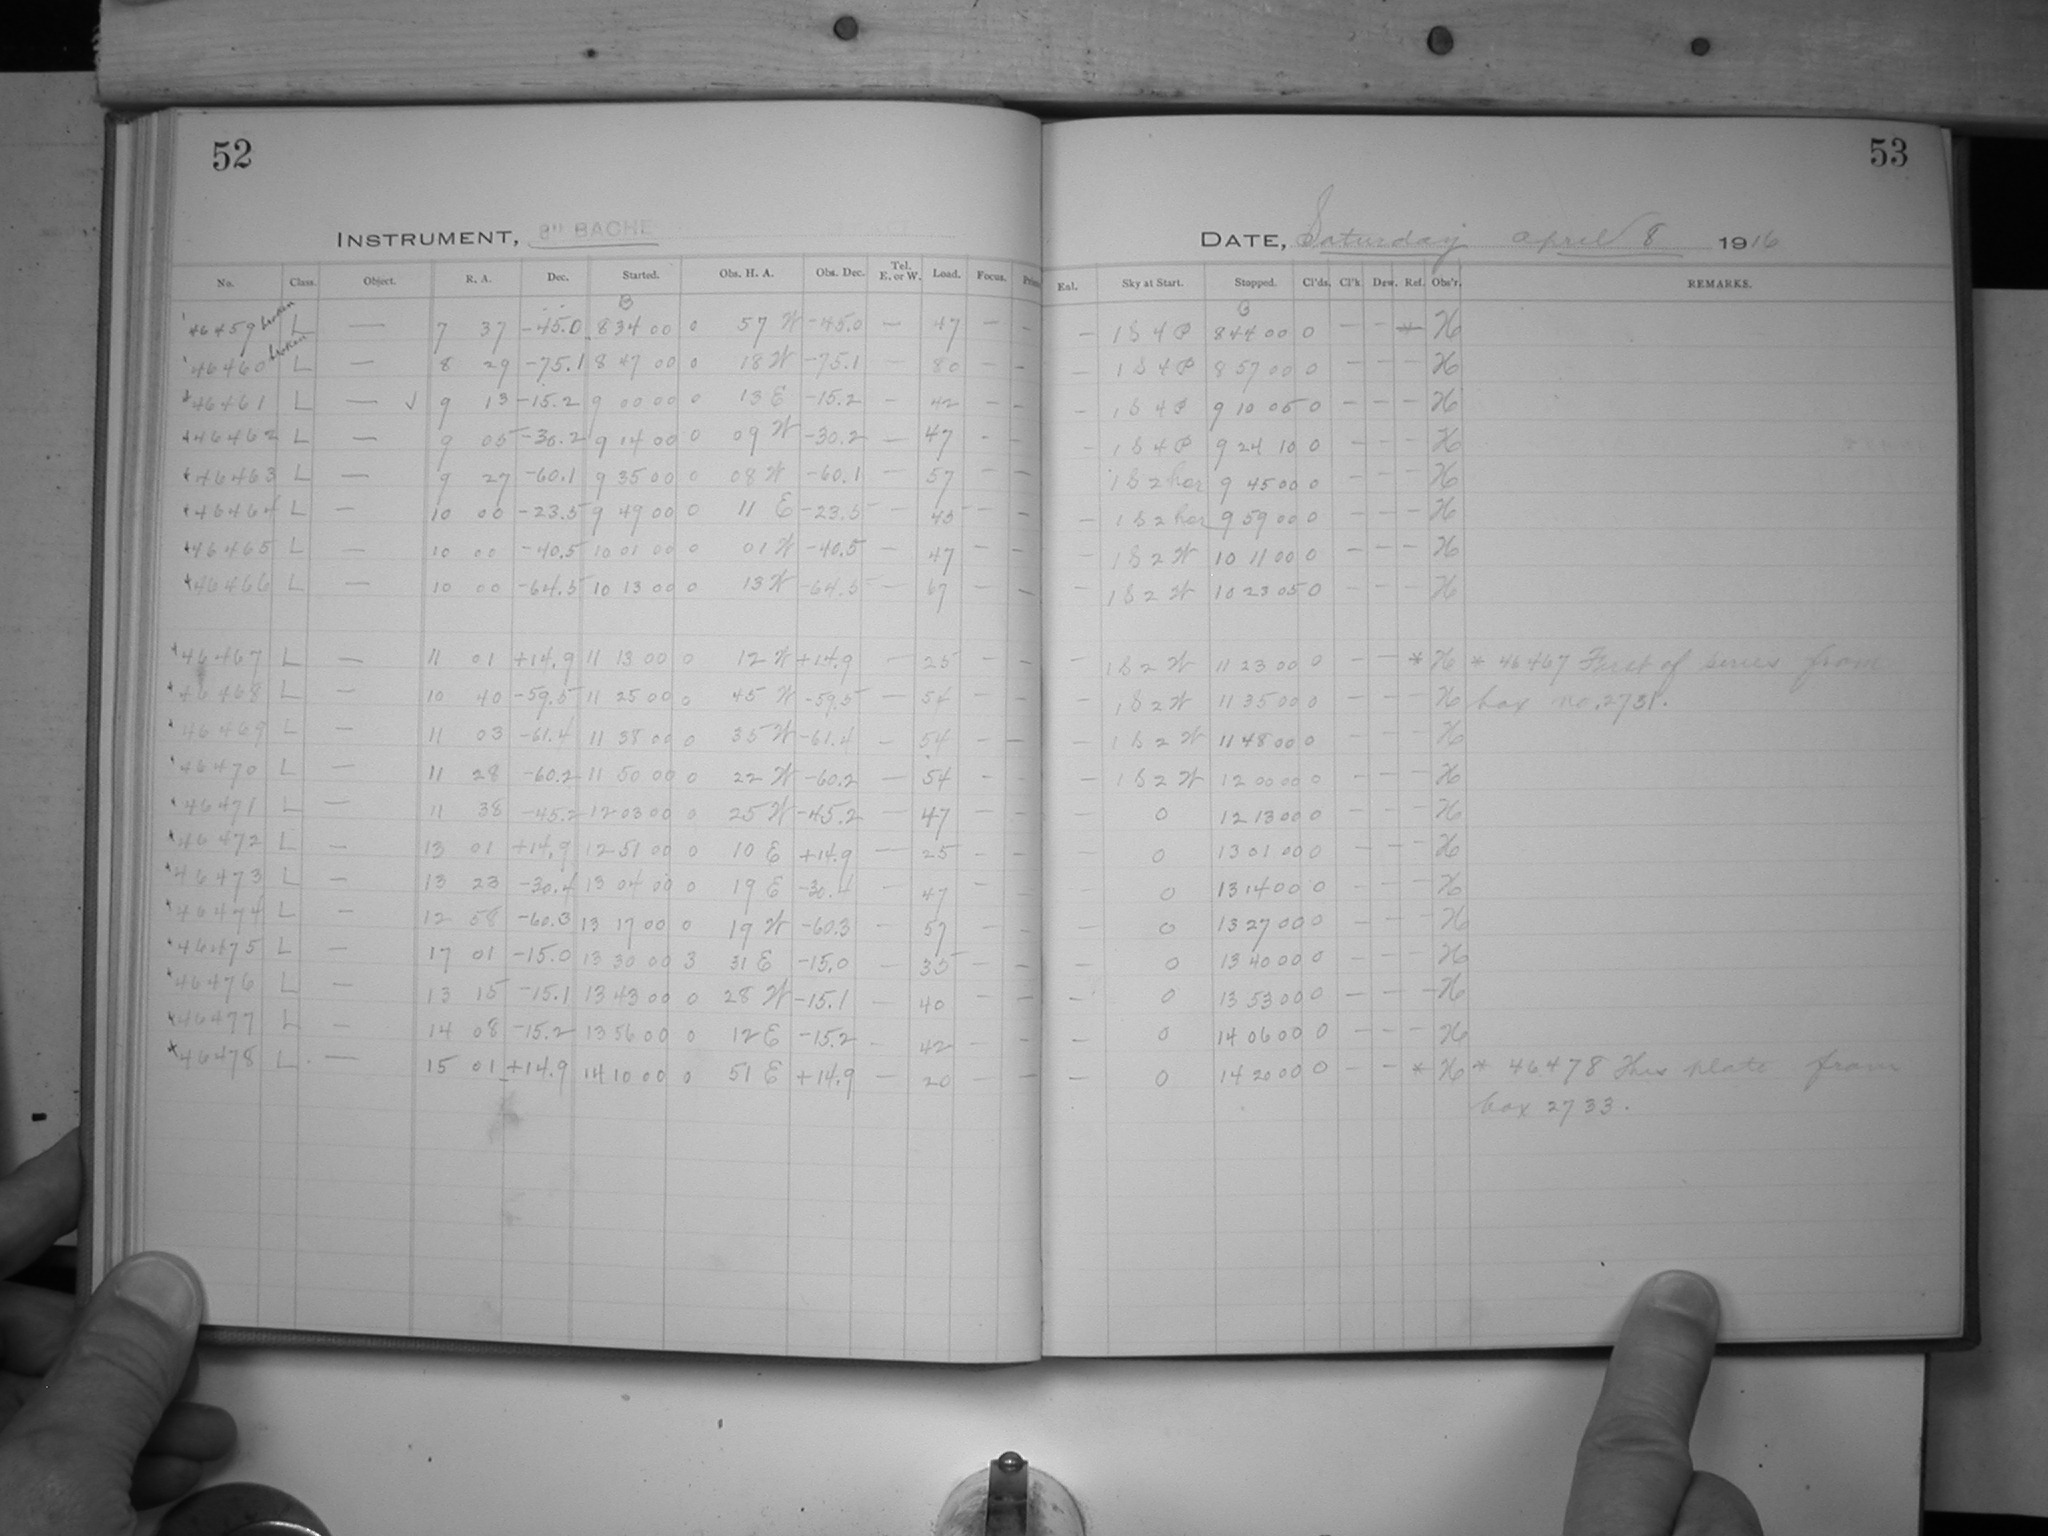 52
53
INSTRUMENT, 8" BACHE
DATE, Saturday April 8 1916
No. Class. Object. R. A. Dec. Started. Obs. H. A. Obs. Dec. Tel. E. or W. Load. Focus. Eal. Sky at Start. Stopped. Cl'ds. Cl'k Dew. Ref. Obs'r. REMARKS.
B B
46459 broken L — 7 37 -45.0 8 34 00 0 57 W -45.0 — 47 — — — 1 S 4 P 8 44 00 0 — — * H
46460 broken L — 8 29 -75.1 8 47 00 0 18 W -75.1 — 80 — — — 1 S 4 P 8 57 00 0 — — — H
46461 L — √ 9 13 -15.2 9 00 00 0 13 E -15.2 — 42 — — — 1 S 4 P 9 10 05 0 — — — H
46462 L — 9 05 -30.2 9 14 00 0 09 W -30.2 — 47 — — — 1 S 4 P 9 24 10 0 — — — H
46463 L — 9 27 -60.1 9 35 00 0 08 W -60.1 — 57 — — 1 S 2 hor 9 45 00 0 — — — H
46464 L — 10 00 -23.5 9 49 00 0 11 E -23.5 — 45 — — — 1 S 2 hor 9 59 00 0 — — — H
46465 L — 10 00 -40.5 10 01 00 0 01 W -40.5 — 47 — — — 1 S 2 W 10 11 00 0 — — — H
46466 L — 10 00 -64.5 10 13 00 0 13 W -64.5 — 67 — — — 1 S 2 W 10 23 05 0 — — — H
46467 L — 11 01 +14.9 11 13 00 0 12 W +14.9 — 25 — — — 1 S 2 W 11 23 00 0 — — * H * 46467 First of series from
46468 L — 10 40 -59.5 11 25 00 0 45 W -59.5 — 54 — — — 1 S 2 W 11 35 00 0 — — — H box no. 2731.
46469 L — 11 03 -61.4 11 38 00 0 35 W -61.4 — 54 — — — 1 S 2 W 11 48 00 0 — — — H
46470 L — 11 28 -60.2 11 50 00 0 22 W -60.2 — 54 — — — 1 S 2 W 12 00 00 0 — — — H
46471 L — 11 38 -45.2 12 03 00 0 25 W -45.2 — 47 — — — 0 12 13 00 0 — — — H
46472 L — 13 01 +14.9 12 51 00 0 10 E +14.9 — 25 — — — 0 13 01 00 0 — — — H
46473 L — 13 23 -30.4 13 04 00 0 19 E -30.4 — 47 — — — 0 13 14 00 0 — — — H
46474 L — 12 58 -60.3 13 17 00 0 19 W -60.3 — 57 — — — 0 13 27 00 0 — — — H
46475 L — 17 01 -15.0 13 30 00 3 31 E -15.0 — 35 — — — 0 13 40 00 0 — — — H
46476 L — 13 15 -15.1 13 43 00 0 28 W -15.1 — 40 — — — 0 13 53 00 0 — — — H
46477 L — 14 08 -15.2 13 56 00 0 12 E -15.2 — 42 — — — 0 14 06 00 0 — — — H
46478 L — 15 01 +14.9 14 10 00 0 51 E +14.9 — 20 — — — 0 14 20 00 0 — — * H * 46478 This plate from
box 2733.